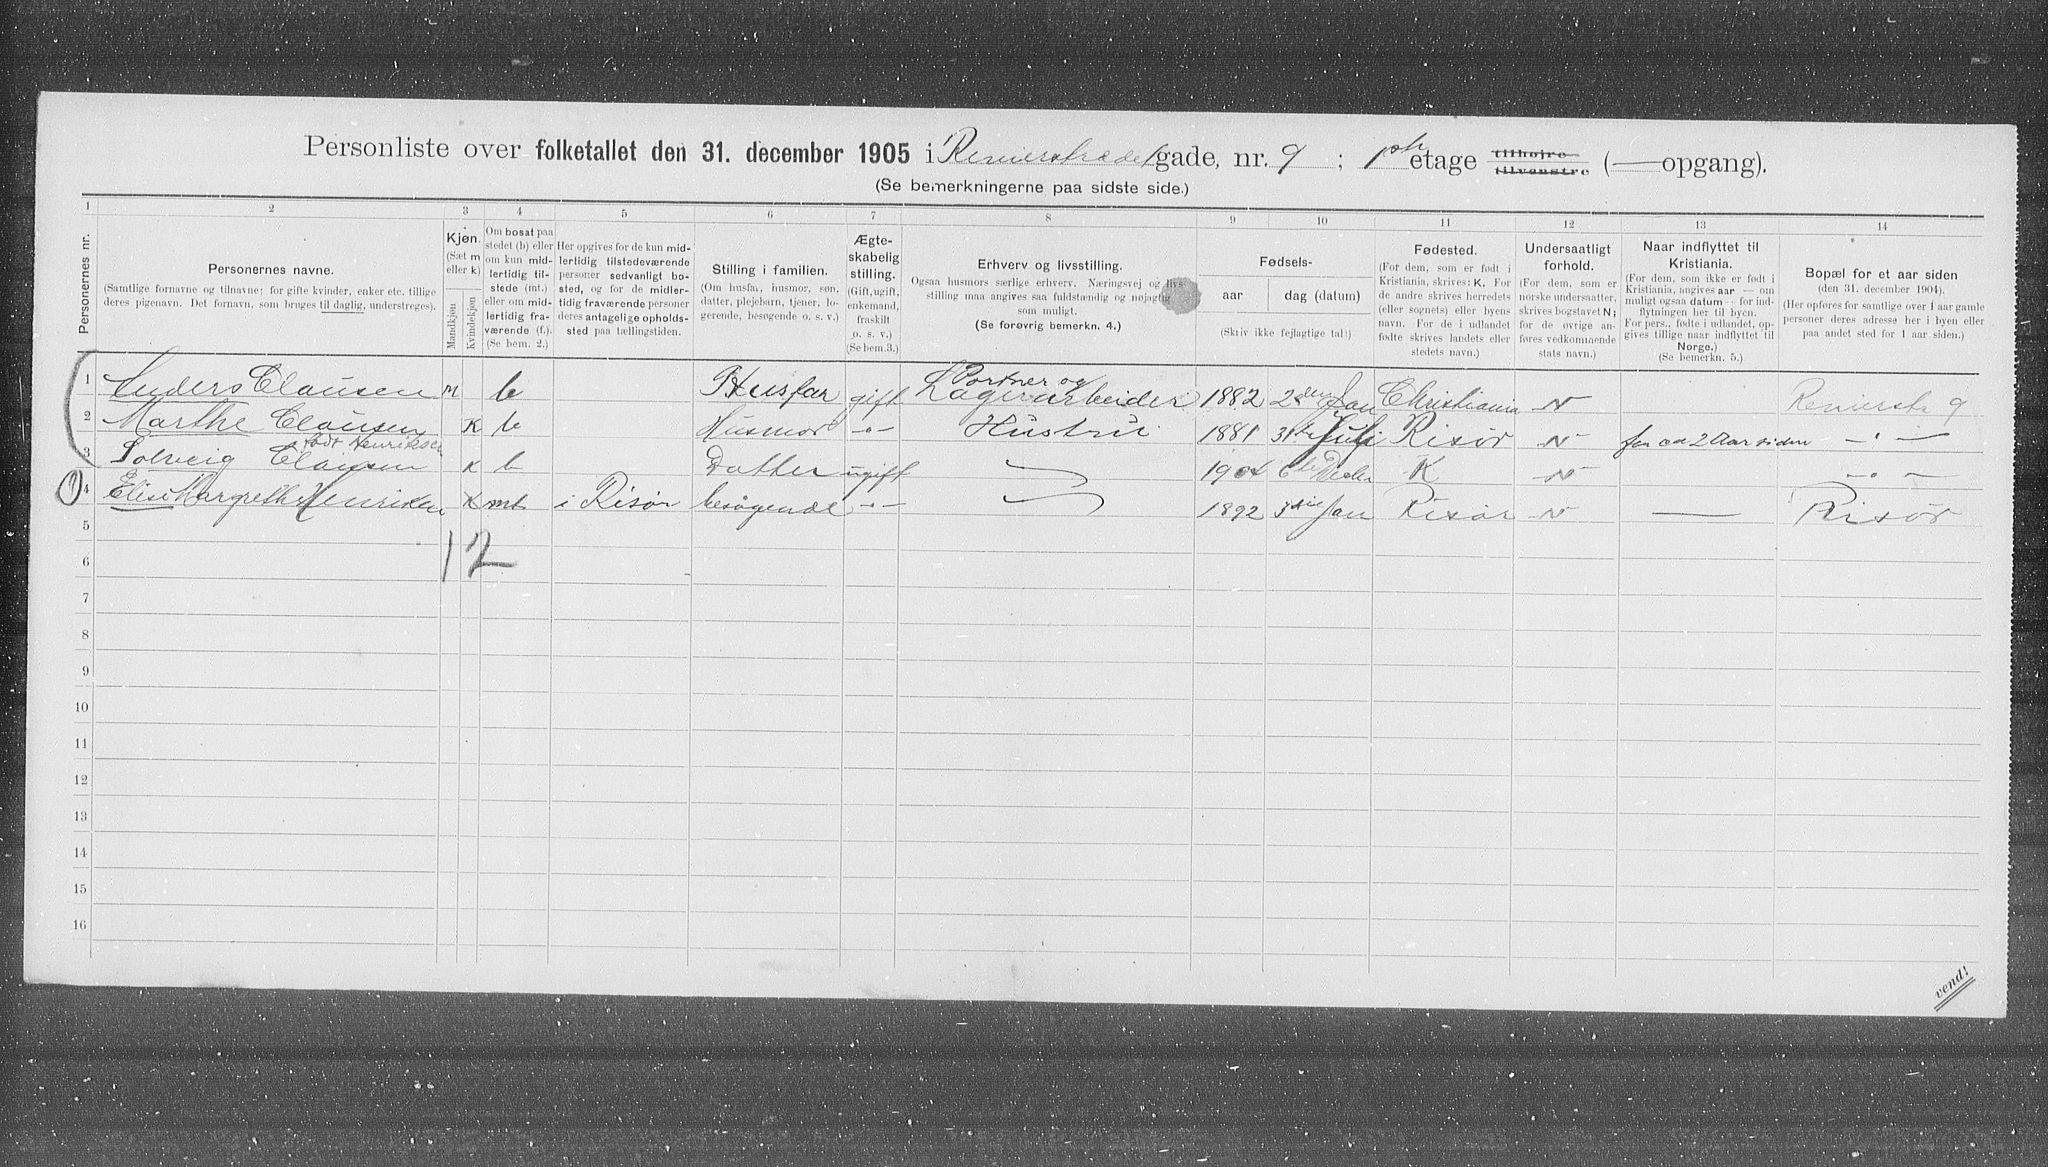 Personliste over folketallet den 31. december 1905 i Revierstrædet gade, nr. 9 ; 1ste etage tilhøjre tilvenstre (— opgang).
(Se bemerkningerne paa sidste side.)
1 2 3 4 5 6 7 8 9 10 11 12 13 14
Personernes nr.
Personernes navne.
(Samtlige fornavne og tilnavne; for gifte kvinder, enker etc. tillige
deres pigenavn. Det fornavn, som bruges til daglig, understreges).
Kjøn.
(Sæt m
eller k)
Mandkjøn
Kvindekjøn
Om bosat paa
stedet (b) eller
om kun mid-
lertidig til-
stede (mt.)
eller om mid-
lertidig fra-
værende (f.).
(Se bem. 2.)
Her opgives for de kun mid-
lertidig tilstedeværende
personer sedvanligt bo-
sted, og for de midler-
tidig fraværende personer
deres antagelige opholds-
sted paa tællingstiden.
Stilling i familien.
(Om husfa, husmor, søn,
datter, plejebarn, tjener, lo-
gerende, besøgende o. s. v.)
Ægte-
skabelig
stilling.
(Gift, ugift,
enkemand,
fraskilt
o. s. v.)
(Se bem. 3.)
Erhverv og livsstilling.
Ogsaa husmors særlige erhverv. Næringsvej og livs-
stilling maa angives saa fuldstændig og nøjagtig
som muligt.
(Se forøvrig bemerkn. 4.)
Fødsels-
aar
dag (datum)
(Skriv ikke fejlagtige tal!)
Fødested.
(For dem, som er født i
Kristiania, skrives: K. For
de andre skrives herredets
(eller sognets) eller byens
navn. For de i udlandet
fødte skrives landets eller
stedets navn.)
Undersaatligt
forhold.
(For dem, som er
norske undersaatter,
skrives bogstavet N;
for de øvrige an-
føres vedkommende
stats navn.)
Naar indflyttet til
Kristiania.
(For dem, som ikke er født i
Kristiania, angives aar — om
muligt ogsaa datum — for ind-
flytningen her til byen.
For pers., fødte i udlandet, op-
gives tillige naar indflyttet til
Norge.)
(Se bemerkn. 5.)
Bopæl for et aar siden
(den 31. december 1904).
(Her opføres for samtlige over 1 aar gamle
personer deres adresse her i byen eller
paa andet sted for 1 aar siden.)
1 Anders Clausen m b Husfar gift Portner og Lagerarbeider 1882 2den Jan Christiania N Revierstr 9
2 Marthe Clausen født Henriksen K b Husmor -"- Hustru 1881 31te Juli Risør N for ca 2 Aar siden -"-
3 Solveig Clausen K b Datter ugift 1904 6te K N -"-
4 Elise Margrethe Henriksen K mt i Risør besøgende -"- 1892 3die Jan Risør N — Risør
5
1 2
6
7
8
9
10
11
12
13
14
15
16
vend!